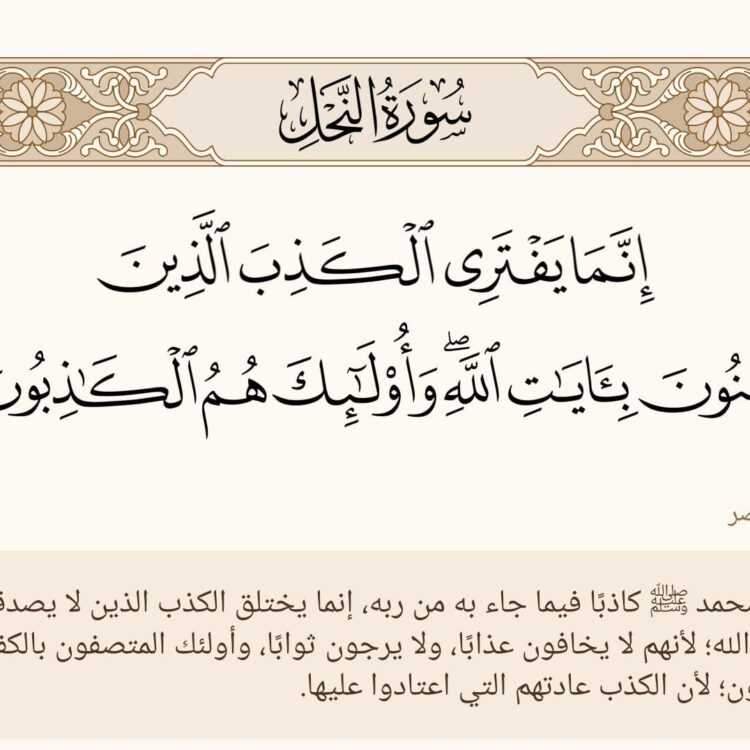 سُورَةُ النَّحْلِ
إِنَّمَا يَفْتَرِى ٱلْكَذِبَ ٱلَّذِينَ
نُونَ بِـَٔايَـٰتِ ٱللَّهِ ۖ وَأُو۟لَـٰٓئِكَ هُمُ ٱلْكَـٰذِبُونَ
صر
محمد ﷺ كاذبًا فيما جاء به من ربه، إنما يختلق الكذب الذين لا يصدق
الله؛ لأنهم لا يخافون عذابًا، ولا يرجون ثوابًا، وأولئك المتصفون بالكف
ون؛ لأن الكذب عادتهم التي اعتادوا عليها.